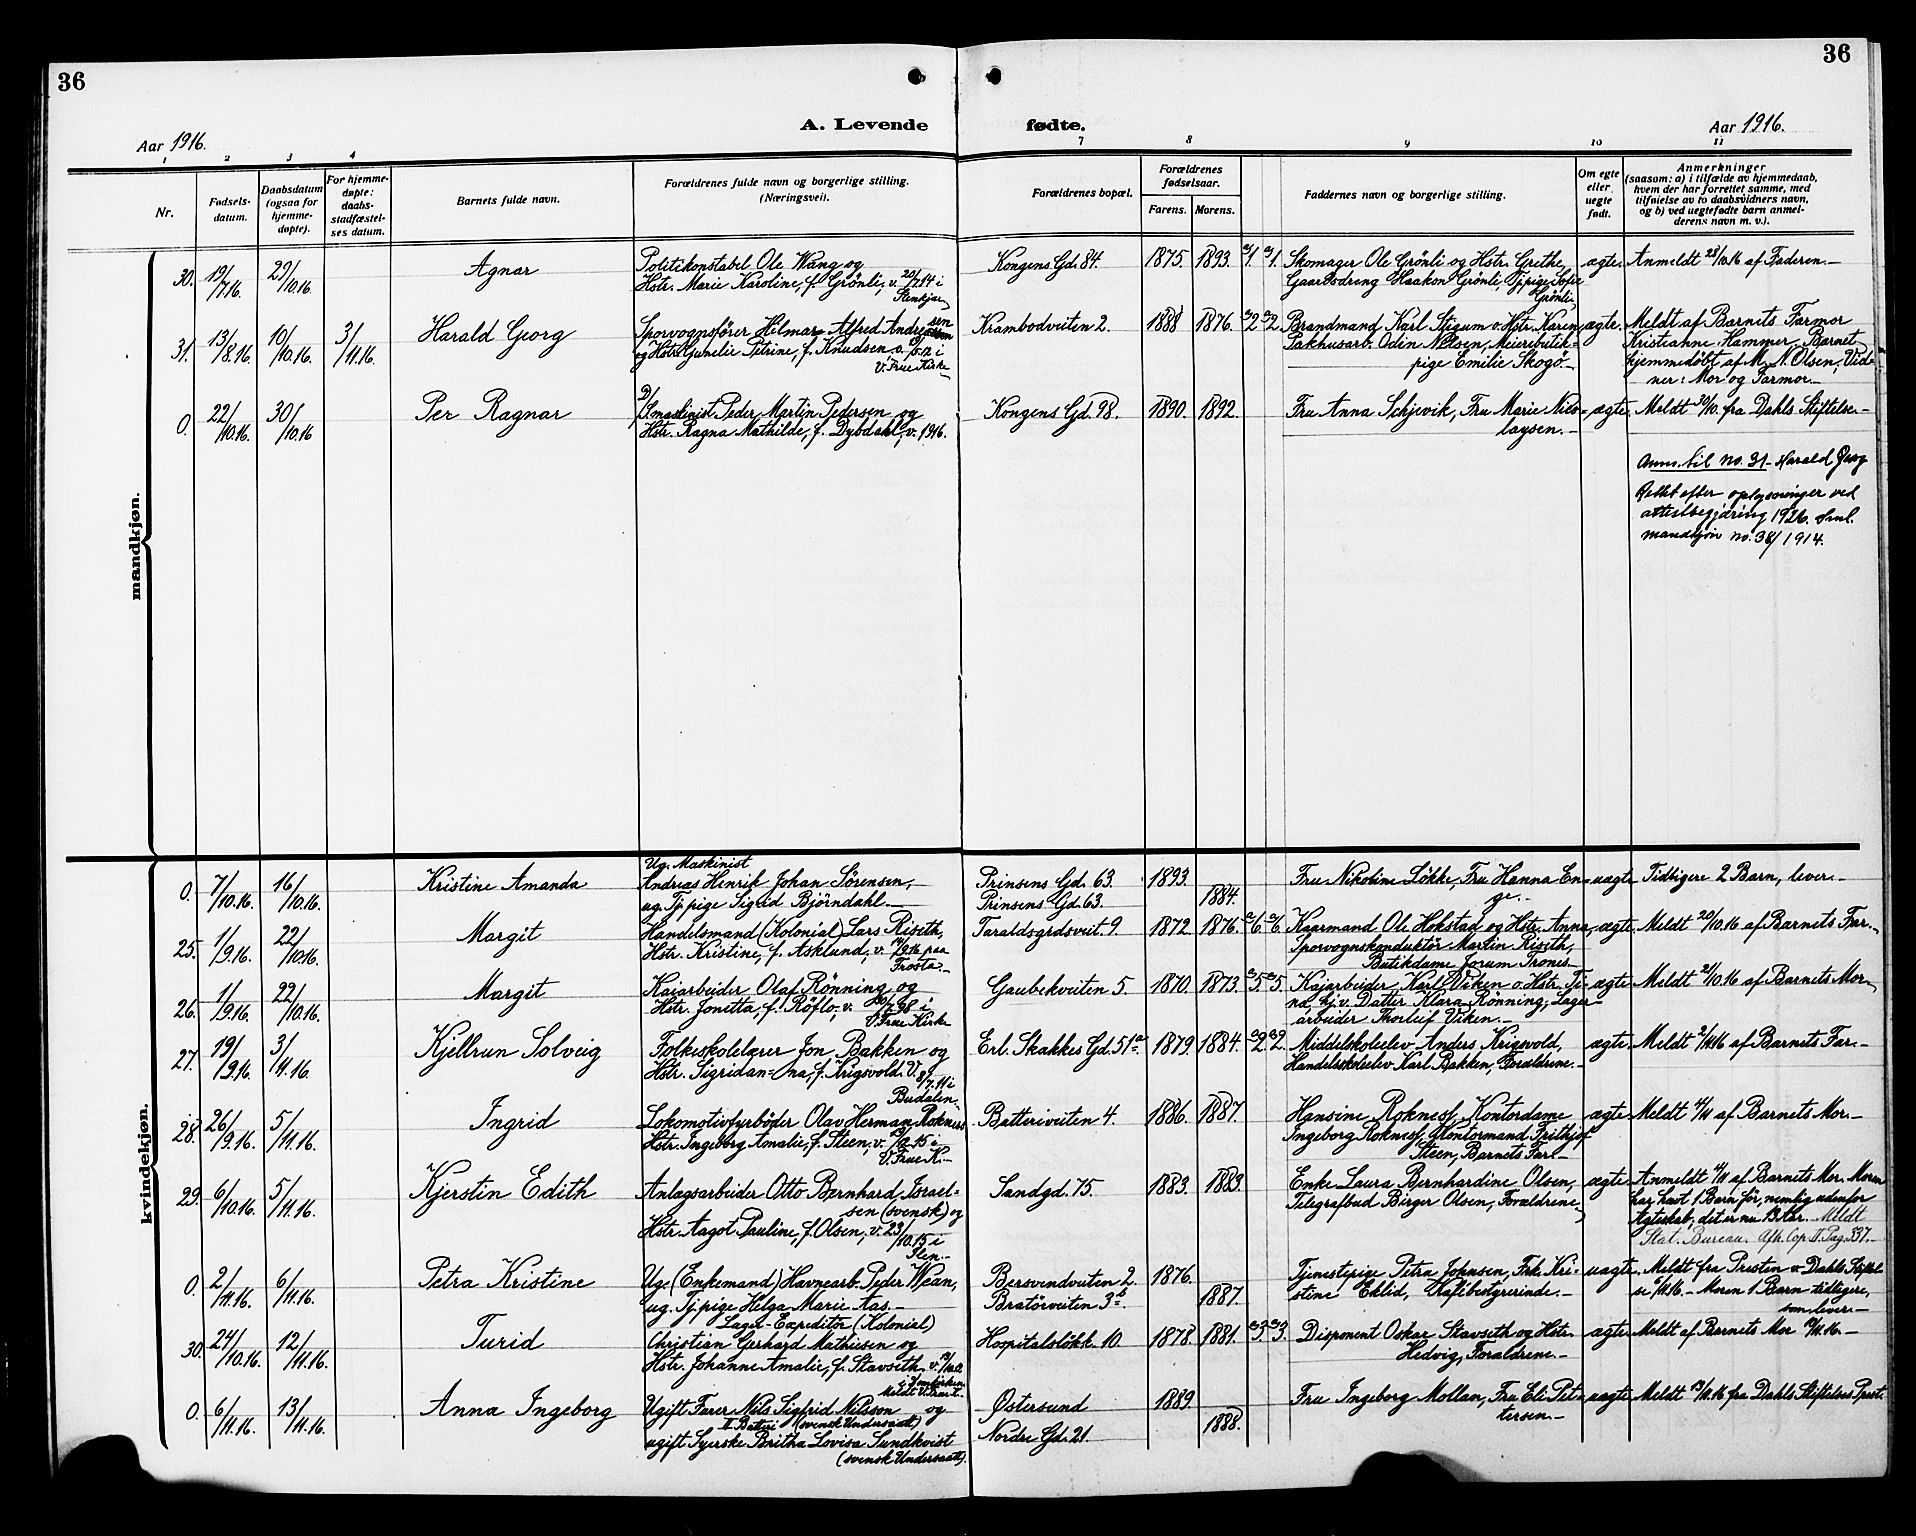 36
36
A. Levende fødte.
Aar 1916.
Aar 1916.
1 2 3 4 7 8 9 10 11
Nr.
Fødsels-
datum.
Daabsdatum
(ogsaa for
hjemme-
døpte).
For hjemme-
døpte:
daabs-
stadfæstel-
ses datum.
Barnets fulde navn.
Forældrenes fulde navn og borgerlige stilling.
(Næringsvei).
Forældrenes bopæl.
Forældrenes
fødselsaar.
Farens. Morens.
Faddernes navn og borgerlige stilling.
Om egte
eller
uegte
født.
Anmerkninger
(saasom: a) i tilfælde av hjemmedaab,
hvem der har forrettet samme, med
tilføielse av to daabsvidners navn,
og b) ved uegtefødte barn anmel-
derens navn m. v.).
mandkjøn.
30. 19/7.16. 29/10.16. Agnar
Politikonstabel Ole Wang og
Hstr. Marie Karoline, f. Grönli, v. 20/7.14 i
Stenkjær
Kongens Gd. 84. 1875. 1893. 1. 1.
Skomager Ole Grönli og Hstr. Grethe,
Gaardsdreng Haakon Grönli, Tjpige Sofie
Grönli
ægte. Anmeldt 28/10.16 af Faderen.-
31. 13/8.16. 10/10.16. 3/11.16. Harald Georg
Sporvognsfører Hilmar Alfred Andresen
og Hstr. Gunelie Petrine, f. Knudsen v. 5.12 i
V. Frue Kirke
Krambodveiten 2. 1888 1876. 2. 2.
Brandmand Karl Stigum o. Hstr. Karen,
Pakhusarb. Odin Nelsen, Meieributik-
pige Emilie Skogö.-
ægte. Meldt af Barnets Farmor
Kristianne Hammer. Barnet
hjemmedøbt af M. N. Olsen, Vid-
ner: Mor og Farmor.-
0. 22/10.16. 30/10.16 Per Ragnar
Smaskinist Peder Martin Pedersen og
Hstr. Ragna Mathilde, f. Dybdahl, v. 1916.
Kongens Gd. 98. 1890. 1892.
Fru Anna Schjevik, Fru Marie Nico-
laysen.-
ægte. Meldt 30/10. fra Dahls Stiftelse.-
Anm. til no. 31 - Harald Georg
Rettet efter oplysninger ved
attestbegjæring 1926. Sml.
mandkjøn no. 38/1914.
kvindekjøn.
0. 7/10.16. 16/10.16. Kristine Amanda
Ug. Maskinist
Andreas Henrik Johan Sørensen,
ug. Tjpige Sigrid Björndahl.-
Prinsens Gd. 63. 1893.
Prinsens Gd. 63. 1884.
Fru Nikoline Løkke, Fru Hanna En-
ge.-
uægte Tidligere 2 Barn, lever.-
25. 1/9.16. 22/10.16. Margit
Handelsmand (Kolonial) Lars Riseth,
Hstr. Kristine, f. Asklund, v. 9.16 paa
Frosta.-
Taraldsgrdsveit 9. 1872 1876. 6. 6.
Kaarmand Ole Hokstad og Hstr. Anna,
Sporvognskonduktør Martin Riseth,
Butikdame Jorum Trones.-
ægte. Meldt 20/10.16 af Barnets Far.-
26. 1/9.16. 22/10.16. Margit
Kaiarbeider Olaf Rönning og
Hstr. Jonetta, f. Röflo, v. 98 i
V. Frue Kirke
Gaubekveiten 5. 1870. 1873. 5. 5.
Kajarbeider Karl Viken o. Hstr. Ti-
na, hj. v. Datter Klara Rönning, Lager-
arbeider Thorleif Viken.-
ægte. Meldt 21/10.16 af Barnets Mor.
27. 19/9.16. 3/11.16. Kjellrun Solveig
Folkeskolelærer Jon Bakken og
Hstr. Sigridan=na, f. Krigsvold. V. 8/7.11 i
Budalen.-
Erl. Skakkes Gd. 51a. 1879. 1884. 2. 2.
Middelskoleelev Anders Krigsvold,
Handelskoleelev Karl Bakken, Forældrene.-
ægte. Meldt 2/11.16 af Barnets Far.-
28. 26/9.16. 5/11.16. Ingrid
Lokomotivfyrbøder Olav Herman Roknes
Hstr. Ingeborg Amalie, f. Steen, v. 15 i
V. Frue K.-
Batteriveiten 4. 1886. 1887.
Hansine Roknes, Kontordame
Ingeborg Roknes, Kontormand Frithjof
Steen, Barnets Far.-
ægte Meldt 4/11 af Barnets Mor.-
29. 6/10.16. 5/11.16. Kjerstin Edith
Anlagsarbeider Otto Bernhard Israel-
sen (svensk) og
Hstr. Aagot Pauline, f. Olsen, v. 23/10.15 i
Sten.-
Sandgd. 75. 1883. 1883.
Enke Laura Bernhardine Olsen,
Telegrafbud Birger Olsen, Forældrene
ægte. Anmeldt 4/11 af Barnets Mor. Moren
har havt 1 Barn før, nemlig udenfor
Ægteskab, det er nu 13 Aar. Meldt
Stat. Bureau. Afh. Cop. II. Pag. 337.
0. 2/11.16. 6/11.16. Petra Kristine
Ug. (Enkemand) Havnearb. Peder Wean,
ug. Tjpige Helga Marie Aas.-
Bersvendveiten 2. 1876.
Bratörveiten 3b. 1887.
Tjenestepige Petra Johnsen, Frk. Kri-
stine Eklid, Kafébestyrerinde.-
uægte. Meldt fra Presten v. Dahls Stiftel-
se 6/11.16.- Moren 1 Barn tidligere,
som lever.-
30. 24/10.16. 12/11.16. Turid
Lager-Expeditør (Kolonial)
Christian Gerhard Mathisen og
Hstr. Johanne Amalie, f. Stavseth, v.
i Domkirken
Hospitalsløkk. 10. 1878. 1881. 3. 3.
Disponent Oskar Stavseth og Hstr.
Hedvig, Forældrene.-
ægte Meldt af Barnets Mor 11.16.-
0. 6/11.16. 13/11.16. Anna Ingeborg
Ugift Furer Nils Sigfrid Nilsson og
II Batteri (svensk Undersaatt)
ugift Syerske Britha Lovisa Sundkvist
(svensk Undersaatt).
Østersund 1889.
Nordre Gd. 21. 1888.
Fru Ingeborg Mollan, Fru Eli Pet-
tersen.-
uægte Meldt 13/11.16 fra Dahls Stiftelses Prest.